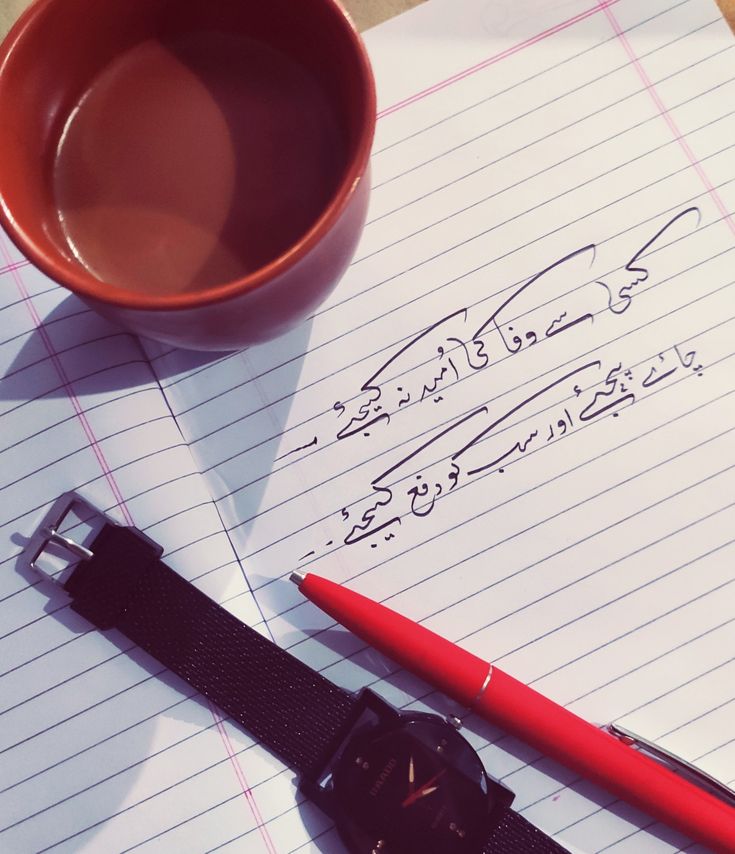 کسی سے وفا کی اُمید نہ کیجئے ۔۔
چائے پیجئے اور سب کو دفع کیجئے ۔۔
RADO